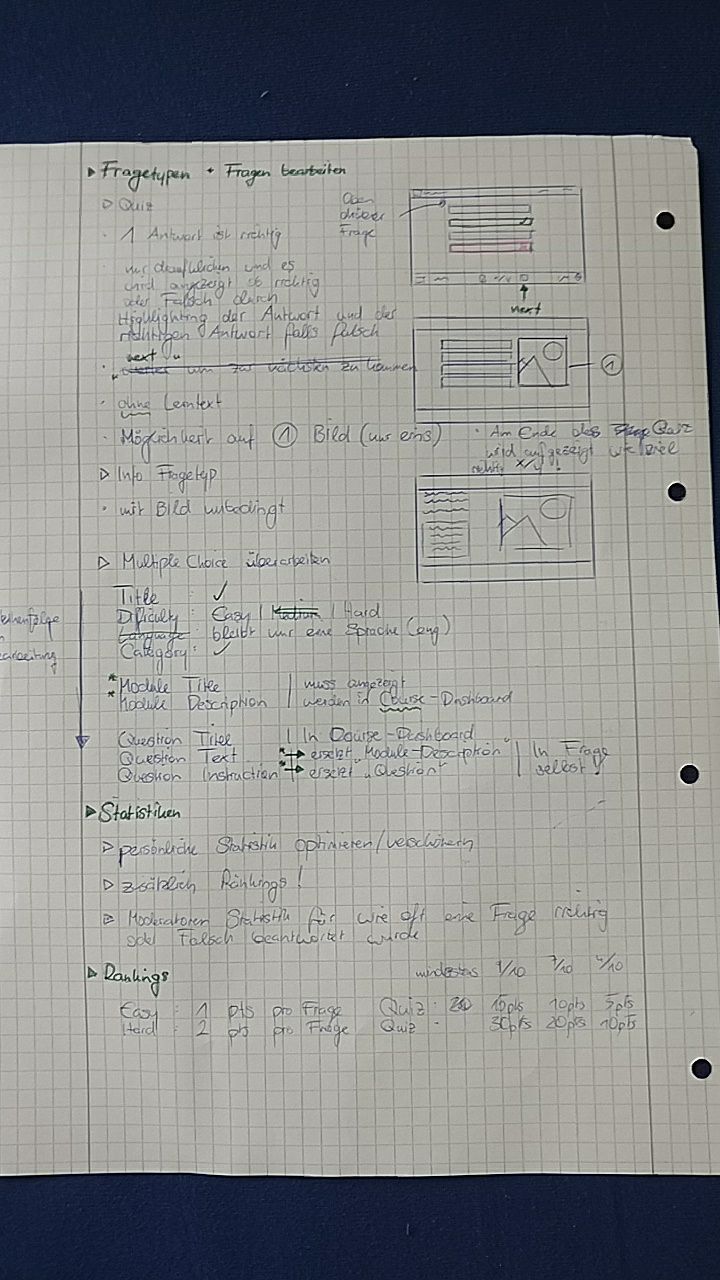 Fragetypen + Fragen bearbeiten
▷ Quiz
Oben
drüber
Frage
· 1 Antwort ist richtig
· nur draufklicken und es
wird angezeigt ob richtig
oder Falsch durch
Highlighting der Antwort und der
richtigen Antwort falls falsch
next
"next"
· um zur nächsten zu kommen
①
· ohne Lerntext
· Möglichkeit auf ① Bild (nur eins)
· Am Ende des Quiz
wird aufgezeigt wie viel
richtig x/y !
▷ Info Fragetyp
· mit Bild unbedingt
▷ Multiple Choice überarbeiten
Title : ✓
Dificulty : Easy | Medium | Hard
Language : bleibt nur eine Sprache (eng)
Category : ✓
* Module Title | muss angezeigt
* Module Description | werden in Course-Dashboard
Question Title | In Course-Dashboard
Question Text *→ ersetzt "Module-Description" | In Frage
Question Instruction *→ ersetzt "Question" | selbst
Statistiken
▷ persönliche Statistik optimieren/verschönern
▷ zusätzlich Rankings!
▷ Moderatoren Statistik für wie oft eine Frage richtig
oder Falsch beantwortet wurde
Rankings
mindestens 9/10 7/10 4/10
Easy : 1 pts pro Frage Quiz : 15pts 10pts 5pts
Hard : 2 pts pro Frage Quiz - 30pts 20pts 10pts